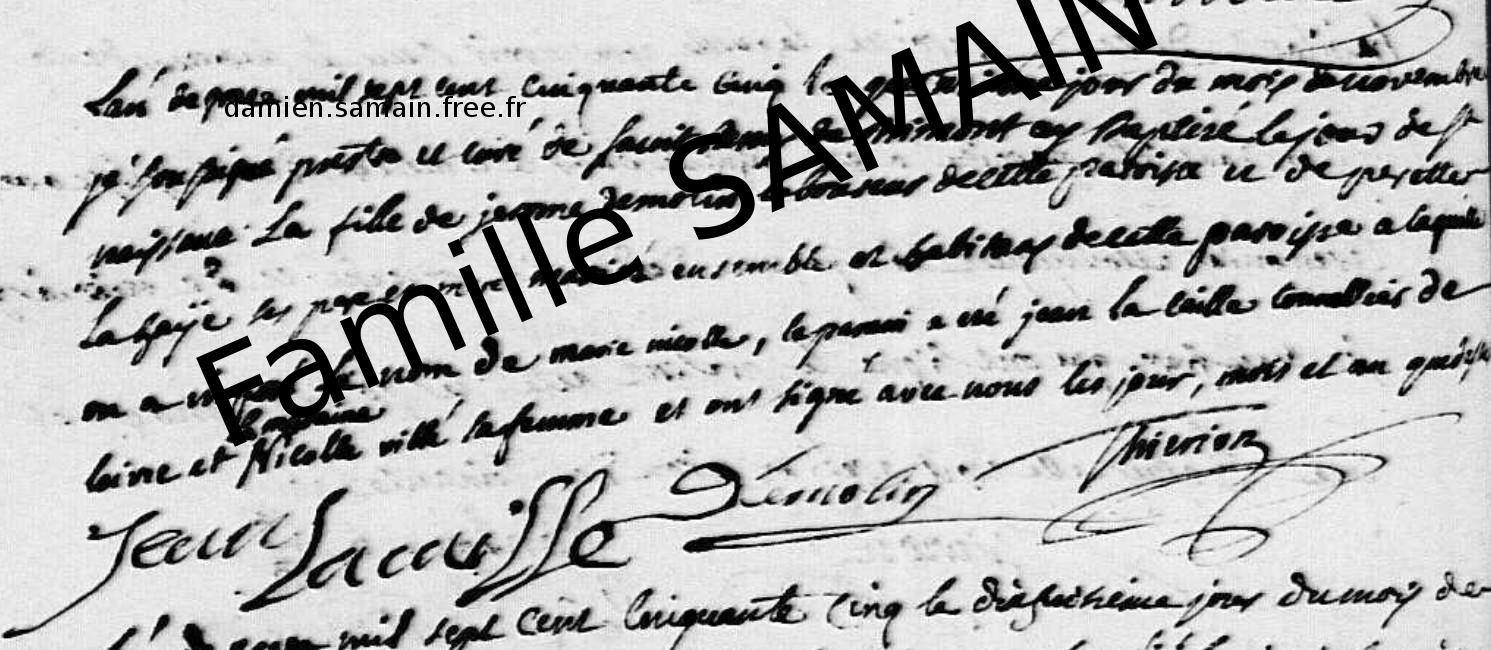 Lan de grace mil sept cent cinquante cinq le jour du mois de novembre
damien.samain.free.fr
je soussigné prestre et curé de saint de ay baptisé le jour de sa
naissance La fille de jerome demolin laboureur de cette paroisse et de perette
Famille SAMAIN
La haÿe ses pere et mere mariés ensemble et habitans de cette paroisse a laquelle
on a imposé le nom de marie nicolle, le parain a été jean la caille tonnellier de
la maraine
loivre et Nicolle villé sa femme et ont signé avec nous les jour, mois et an
Thierion
Jean Lacaille Demolin
mil sept cent cinquante cinq le dixhuitieme jour du mois de